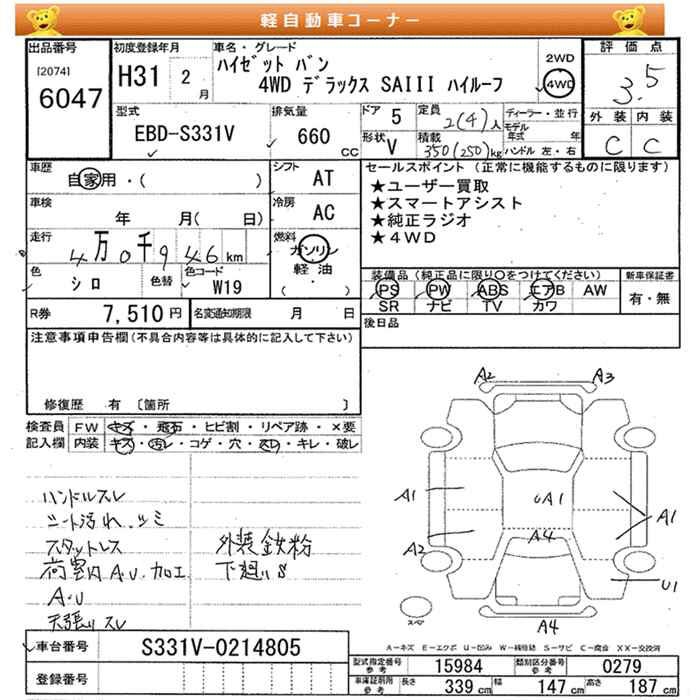 軽自動車コーナー
出品番号
[2074]
6047
初度登録年月
H31 2 月
車名・グレード
ハイゼット バン
4WD デラックス SAIII ハイルーフ
2WD
4WD
評価点
3.5
外装 内装
C C
型式
EBD-S331V
排気量
660 cc
ドア 5
形状 V
定員 2(4)人
積載 350(250)kg
ディーラー・並行
モデル年式 年
ハンドル 左・右
車歴
自家用・( )
シフト AT
車検
年 月( 日)
冷房 AC
走行
4万0千946km
燃料
ガソリン
軽油
( ・ )
色
シロ
色替
色コード
W19
R券 7,510円
名変通知期限 月 日
セールスポイント (正常に機能するものに限ります)
★ユーザー買取
★スマートアシスト
★純正ラジオ
★4WD
装備品(純正品に限り○をつけてください)
PS PW ABS エアB AW
SR ナビ TV カワ
新車保証書
有・無
後日品
注意事項申告欄(不具合内容等は具体的に記入して下さい)
修復歴 有 〔箇所 〕
検査員記入欄
FW キズ・飛石・ヒビ割・リペア跡・×要
内装 キズ・汚レ・コゲ・穴・スレ・キレ・破レ
ハンドルスレ
シート汚れ、シミ
スタットレス
荷室内A.U.加工
A・U
天張りスレ
外装鉄粉
下廻りS
A2 A3
A1 UA1 A1
A2 A4
U1
スペア
A4
A-キズ E-エクボ U-凹み W-補修跡 S-サビ C-腐食 XX-交換済
車台番号 S331V-0214805
登録番号
型式指定番号 参考 15984
類別区分番号 参考 0279
車庫証明用 参考 長さ 339cm 幅 147cm 高さ 187cm